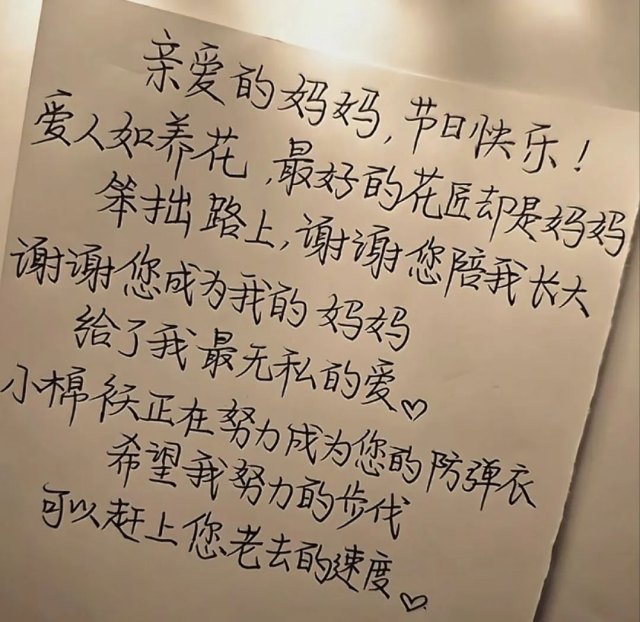 亲爱的妈妈,节日快乐!
爱人如养花,最好的花匠却是妈妈
笨拙路上,谢谢您陪我长大
谢谢您成为我的妈妈
给了我最无私的爱♡
小棉袄正在努力成为您的防弹衣
希望我努力的步伐
可以赶上您老去的速度♡